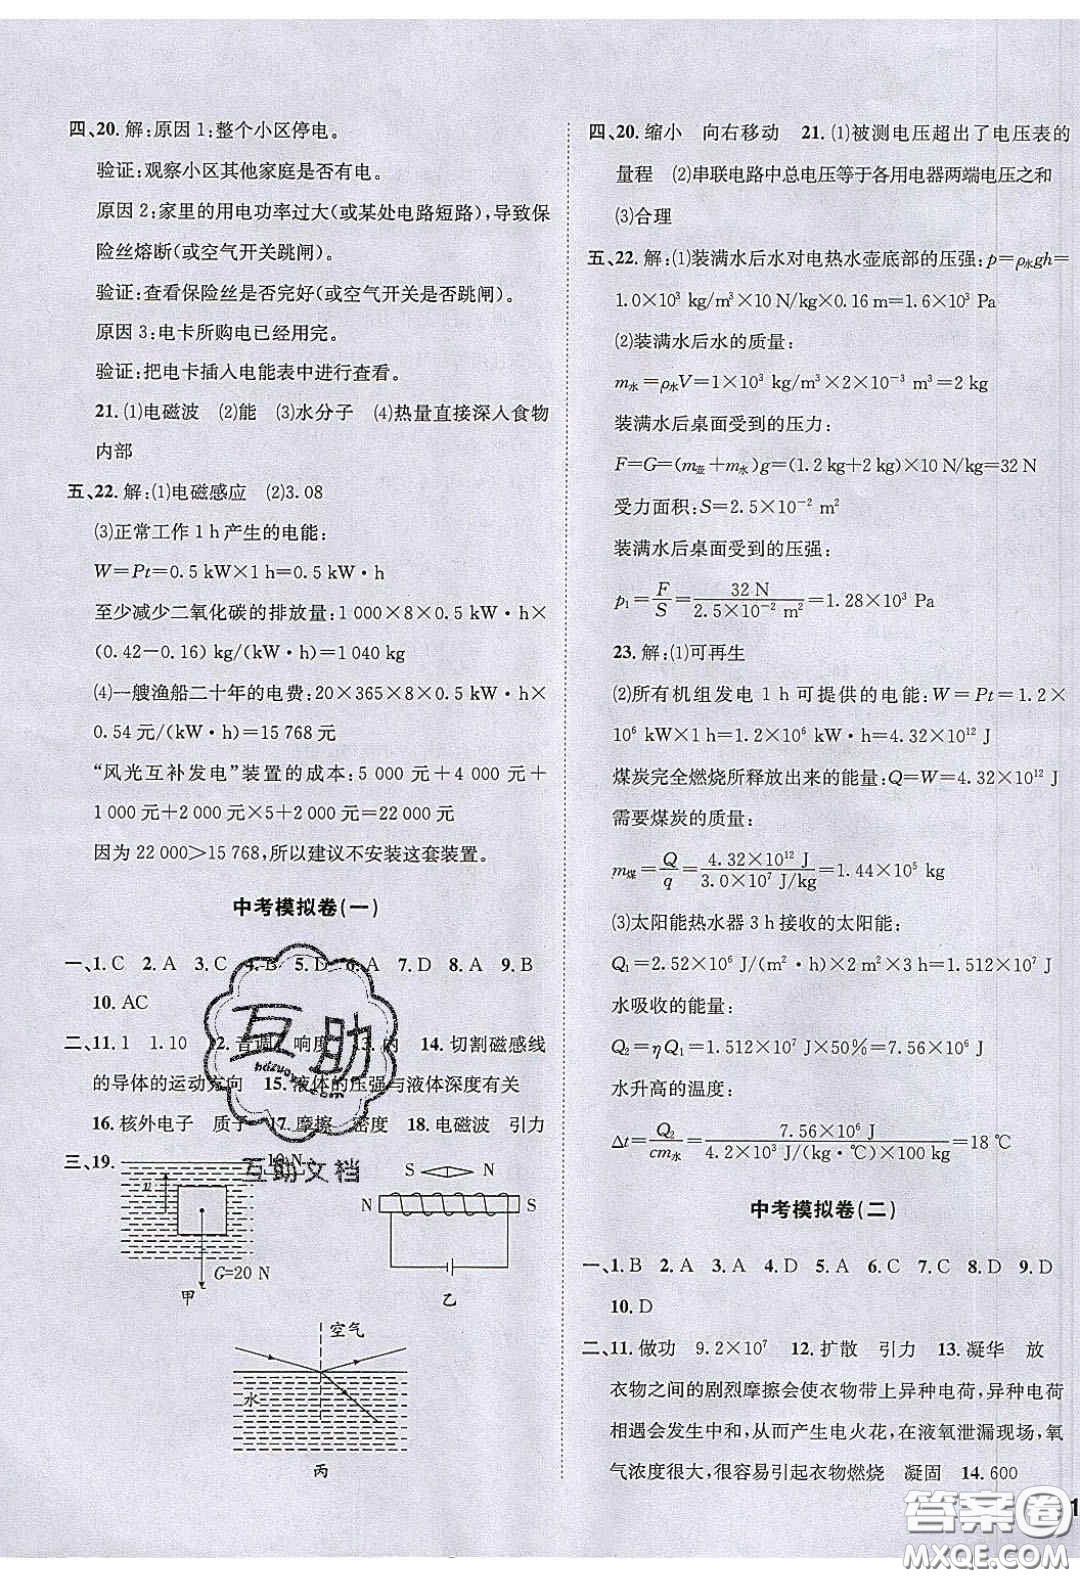 四、20. 解:原因 1:整个小区停电。
验证:观察小区其他家庭是否有电。
原因 2:家里的用电功率过大(或某处电路短路),导致保
险丝熔断(或空气开关跳闸)。
验证:查看保险丝是否完好(或空气开关是否跳闸)。
原因 3:电卡所购电已经用完。
验证:把电卡插入电能表中进行查看。
21. (1)电磁波 (2)能 (3)水分子 (4)热量直接深入食物
内部
五、22. 解:(1)电磁感应 (2)3.08
(3)正常工作 1 h 产生的电能:
W=Pt=0.5 kW×1 h=0.5 kW·h
至少减少二氧化碳的排放量:1 000×8×0.5 kW·h×
(0.42-0.16) kg/(kW·h)=1 040 kg
(4)一艘渔船二十年的电费:20×365×8×0.5 kW·h×
0.54 元/(kW·h)=15 768 元
“风光互补发电”装置的成本:5 000 元+4 000 元+
1 000 元+2 000 元×5+2 000 元=22 000 元
因为 22 000>15 768,所以建议不安装这套装置。
中考模拟卷(一)
一、1. C 2. A 3. C 4. B 5. D 6. A 7. D 8. A 9. B
10. AC
二、11. 1 1.10 12. 音调 响度 13. 内 14. 切割磁感线
的导体的运动方向 15. 液体的压强与液体深度有关
16. 核外电子 质子 17. 摩擦 密度 18. 电磁波 引力
三、19.
10 N
v
G=20 N
甲
S N
N S
乙
空气
水
丙
互助
bdzuoye.com
互助文档
四、20. 缩小 向右移动 21. (1)被测电压超出了电压表的
量程 (2)串联电路中总电压等于各用电器两端电压之和
(3)合理
五、22. 解:(1)装满水后水对电热水壶底部的压强:p=ρ水gh=
1.0×10³ kg/m³×10 N/kg×0.16 m=1.6×10³ Pa
(2)装满水后水的质量:
m水=ρ水V=1×10³ kg/m³×2×10⁻³ m³=2 kg
装满水后桌面受到的压力:
F=G=(m壶+m水)g=(1.2 kg+2 kg)×10 N/kg=32 N
受力面积:S=2.5×10⁻² m²
装满水后桌面受到的压强:
p₁=F/S=32 N/(2.5×10⁻² m²)=1.28×10³ Pa
23. 解:(1)可再生
(2)所有机组发电 1 h 可提供的电能:W=Pt=1.2×
10⁶ kW×1 h=1.2×10⁶ kW·h=4.32×10¹² J
煤炭完全燃烧所释放出来的能量:Q=W=4.32×10¹² J
需要煤炭的质量:
m煤=Q/q=4.32×10¹² J/(3.0×10⁷ J/kg)=1.44×10⁵ kg
(3)太阳能热水器 3 h 接收的太阳能:
Q₁=2.52×10⁶ J/(m²·h)×2 m²×3 h=1.512×10⁷ J
水吸收的能量:
Q₂=ηQ₁=1.512×10⁷ J×50%=7.56×10⁶ J
水升高的温度:
Δt=Q₂/cm水=7.56×10⁶ J/(4.2×10³ J/(kg·℃)×100 kg)=18 ℃
中考模拟卷(二)
一、1. B 2. A 3. A 4. D 5. A 6. C 7. C 8. D 9. D
10. D
二、11. 做功 9.2×10⁷ 12. 扩散 引力 13. 凝华 放
衣物之间的剧烈摩擦会使衣物带上异种电荷,异种电荷
相遇会发生中和,从而产生电火花,在液氧泄漏现场,氧
气浓度很大,很容易引起衣物燃烧 凝固 14. 600
1
答案圈
MXQE.COM